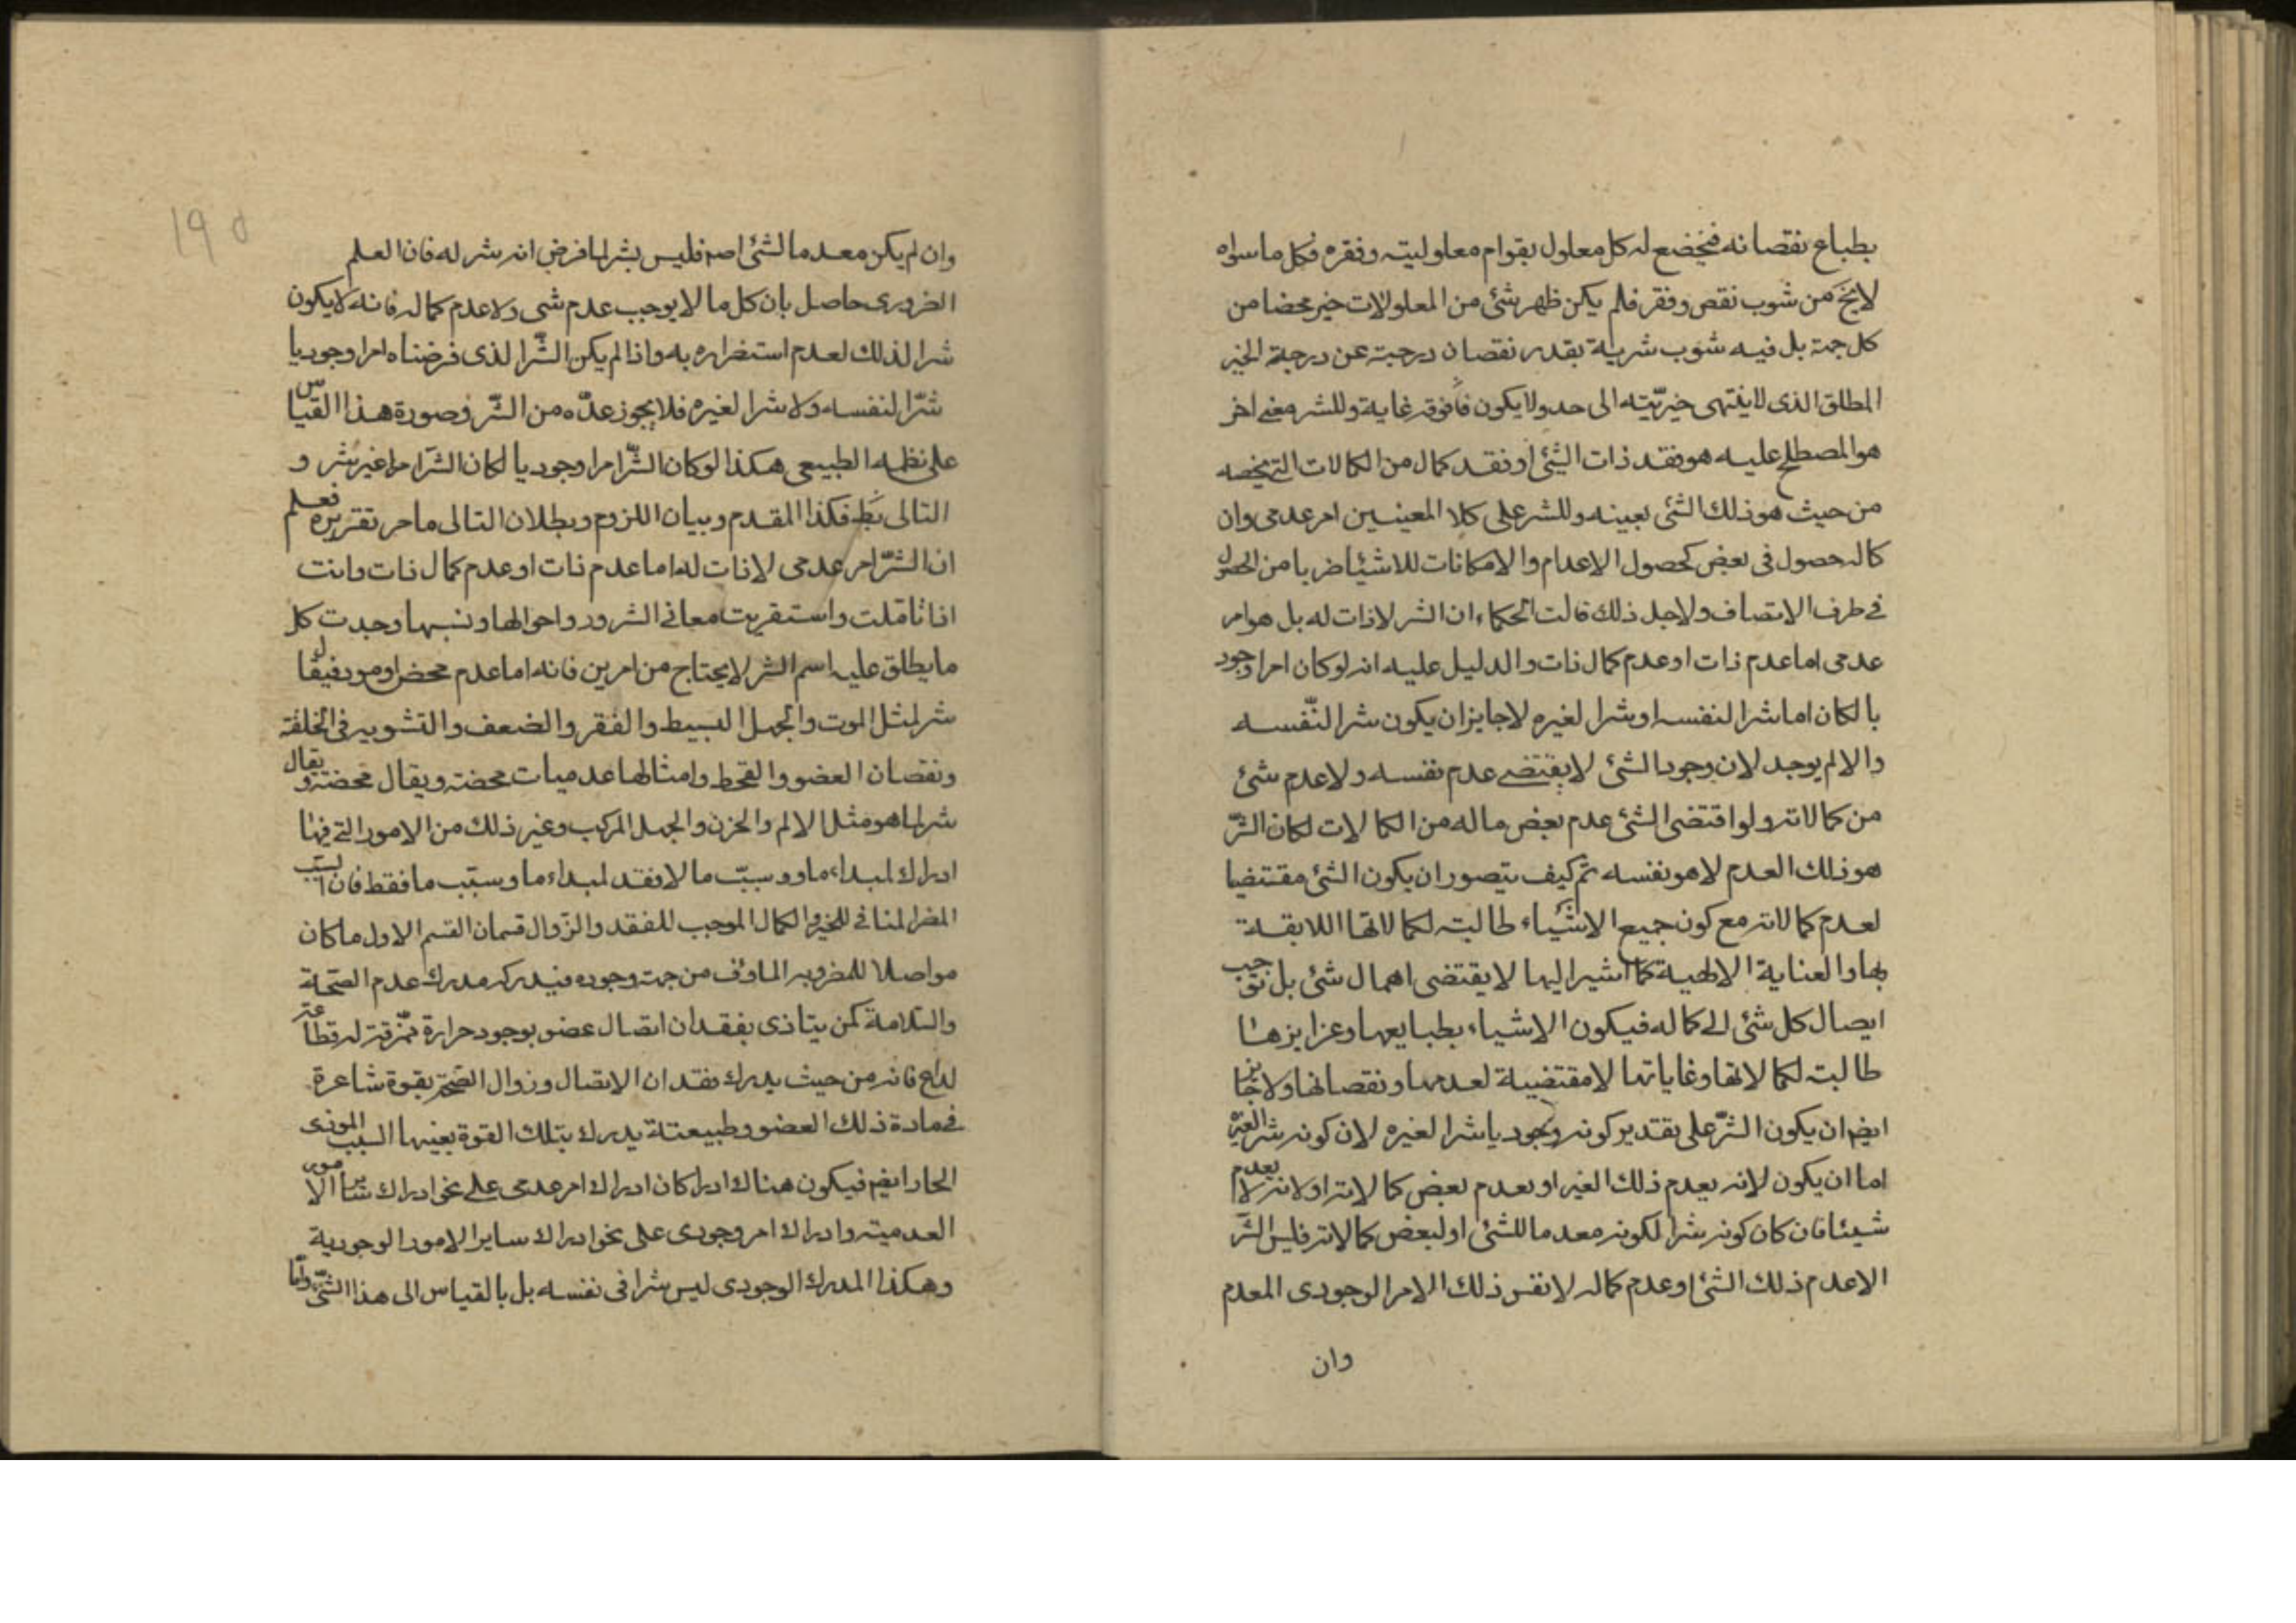 بطباع نقصانه فيخضع له كل معلول بقوام معلوليته وفقره فكل ما سواه
لايخ من شوب نقص وفقر فلم يكن ظهر شئ من المعلولات خير محضا من
كل جهة بل فيه شوب شرية بقدر نقصان درجته عن درجة الخير
المطلق الذى لاينتهى خيريّته الى حد ولا يكون فافوقه غاية وللشر معنے اخر
هو المصطلح عليه هو فقد ذات الشئ او فقد كمال من الكمالات التے يخصه
من حيث هو ذلك الشئ بعينه وللشر على كلا المعينين امر عدمى وان
كاله حصول فى بعض كحصول الاعدام والامكانات للاشيئا ضربا من الحصول
فى طرف الاتصاف ولاجل ذلك قالت الحكماء ان الشر لاذات له بل هو امر
عدمى اما عدم ذات او عدم كمال ذات والدليل عليه انه لو كان امرا وجود
يا لكان اما شرا لنفسه او شرا لغيره لاجايز ان يكون شرا لنّفسه
والا لم يوجد لان وجود الشئ لا يقتضے عدم نفسه ولا عدم شئ
من كمالاته ولو اقتضى الشئ عدم بعض ماله من الكمالات لكان الشرّ
هو ذلك العدم لا هو نفسه ثم كيف يتصور ان يكون الشئ مقتضيا
لعدم كمالاته مع كون جميع الاشياء طالبته لكمالاتها اللايقة
بها والعناية الالهية كما اشير اليها لا يقتضى اهمال شئ بل توجب
ايصال كل شئ الى كماله فيكون الاشياء بطبايعها وغرايزها
طالبته لكمالاتها وغاياتها لا مقتضيية لعدمها ونقصانها ولا جايز
ايضم ان يكون الشرّ على تقدير كونه وجوديا شرا لغيره لان كونه شر الغيره
اما ان يكون لانه يعدم ذلك الغير او يعدم بعض كمالاته او لانه لا يعدم
شيئا فان كان كونه شرا لكونه معدما للشئ او لبعض كمالاته فليس الشر
الا عدم ذلك الشئ او عدم كماله لا نفس ذلك الامر الوجودى المعدم
وان
١٩٥
وان لم يكن معدما لشئ اصه فليس بشر لما فرض انه شر له فان العلم
الضرورى حاصل بان كل ما لا يوجب عدم شى ولا عدم كماله فانه لا يكون
شرا لذلك لعدم استضراره به واذا لم يكن الشّر الذى فرضناه امرا وجوديا
شرّا لنفسه ولا شرا لغيره فلا يجوز عدّه من الشّر وصورة هذا القياس
على نظمه الطبيعى هكذا لو كان الشّر امرا وجوديا لكان الشر امرا غير شر و
التالى بط فكذا المقدم وبيان اللزوم وبطلان التالى ما مر تقريره فعلم
ان الشرّ امر عدمى لا ذات له اما عدم ذات او عدم كمال ذات وانت
اذا تاملت واستقريت معانى الشرور واحوالها ونسبها وجدت كل
ما يطلق عليه اسم الشر لا يحتاج من امرين فانه اما عدم محض او مود فيقال
شر لمثل الموت والجهل البسيط والفقر والضعف والتشويه فى الخلقة
ونقصان العضو والقحط وامثالها عدميات محضته ويقال محضته ويقال
شر لما هو مثل الالم والحزن والجهل المركب وغير ذلك من الامور التے فيها
ادراك لمبداء ما ووسبب ما لا فقد لمبداء ما وسبّب ما فقط فان السبب
المضر المنافى للخير والكمال الموجب للفقد والزّوال قسمان القسم الاول ما كان
مواصلا للمضرور به الماوف من جهت وجوده فيدركه مدرك عدم الصّحة
والسّلامة كمن يتاذى بفقدان اتصال عضو بوجود حرارة ممزّقته له قطاعته
لداع فانه من حيث يدرك فقدان الاتصال وزوال الصّحته بقوة شاعرة
فى مادة ذلك العضو وطبيعتة يدرك بتلك القوة بعينها السبب الموذى
الحار ايضم فيكون هناك ادراكان ادراك امر عدمى على نحو ادراك ساير الامور
العدميته وادراك امر وجودى على نحو ادراك ساير الامور الوجودية
وهكذا المدرك الوجودى ليس شرا فى نفسه بل بالقياس الى هذا الشئ وامّا